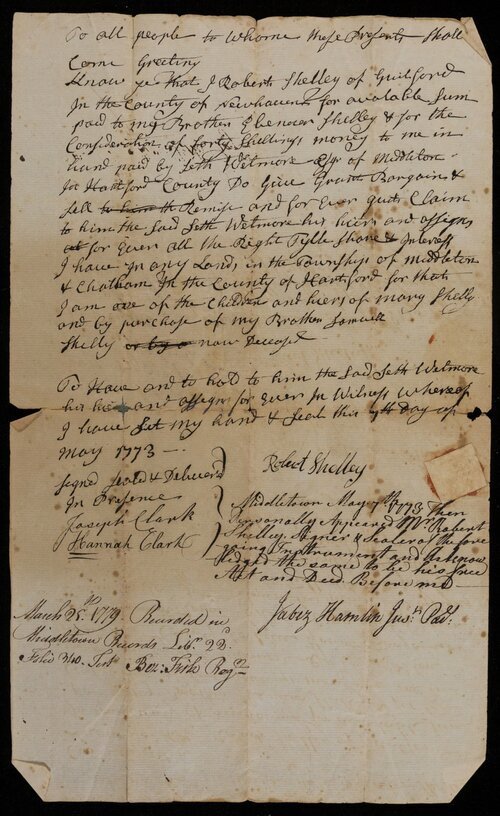 To all people to whome these Presents Shall
Come Greeting
Know ye that I Robert Shelley of Guilford
In the County of Newhaven for avalable Sum
paid to my Brother Ebenezer Shelley & for the
Consideration of forty Shillings money to me in
hand paid by Seth Wetmore Esqr of Middleton
In Hartford County Do Give Grant Bargain &
Sell to him th Remise and for Ever quit Claim
to him the Said Seth Wetmore his heirs and assigns
for Ever all the Right Tytle Share & Interest
I have In any Lands in the Township of Middleton
& Chatham In the County of Hartford for that
I am one of the Children and hiers of mary Shelly
and by purchase of my Brother Samuell
Shelly or by a now Deceased
To Have and to hold to him the Said Seth Wetmore
his hiers and assigns for Ever In Witness Whereof
I have Set my hand & Seal this 7th Day of
May 1773
Signed Seald & Deliverd
In Presence
Joseph Clark
Hannah Clark
Robert Shelley
Middletown May 7th 1773 Then
Personally Appeared Mr Robert
Shelley Signer & Sealer of the fore
going Instrument and Acknow
ledgd the same to be his free
Act and Deed Before me
Jabez Hamlin Justs Pacs
March 25th 1779 Recorded in
Middletown Records Lib. 23d
Folio 340 Test Bez: Fisk Regr